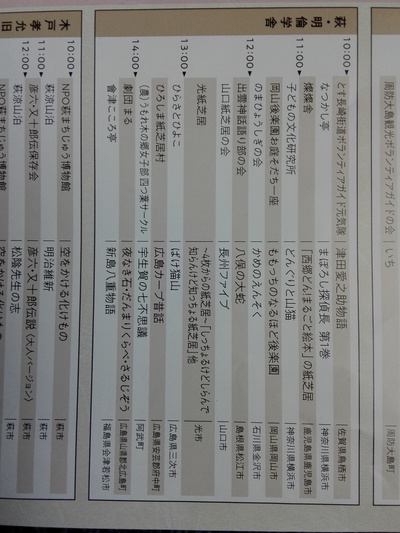 周防大島観光ボランティアガイドの会 いち 周防大島町
萩・明倫学舎
10:00
とす長崎街道ボランティアガイド元気隊 津田愛之助物語 佐賀県鳥栖市
なつかし亭 まぼろし探偵長 第1巻 神奈川県横浜市
燦燦舎 「西郷どんまるごと絵本」の紙芝居 鹿児島県鹿児島市
11:00
子どもの文化研究所 どんぐりと山猫 神奈川県横浜市
岡山後楽園お庭そだち一座 ももっちのなるほど後楽園 岡山県岡山市
のまりょうしぎの会 かめのえんそく 石川県金沢市
12:00
出雲神話語り部の会 八俣の大蛇 島根県松江市
山口紙芝居の会 長州ファイブ 山口市
光紙芝居 ～4枚からの紙芝居～「しっちょるけどしらんで
知らんけど知っちょる紙芝居」他 光市
13:00
ひらさとひよこ ばけ猫山 広島県三次市
ひろしま紙芝居村 広島カープ昔話 広島県安芸郡府中町
(農)うもれ木の郷女子部 四つ葉サークル 宇生賀の七不思議 阿武町
14:00
劇団 まる 夜なき石・だんまりくらべ・さるじぞう 広島県山県郡北広島町
會津こころ亭 新島八重物語 福島県会津若松市
木戸孝允旧
10:00
NPO萩まちじゅう博物館 空をかける化けもの 萩市
萩涼山泊 明治維新 萩市
11:00
彦六・又十郎伝保存会 彦六・又十郎伝説(大人バージョン) 萩市
萩涼山泊 松陰先生の志 萩市
NPO萩まちじゅう博物館